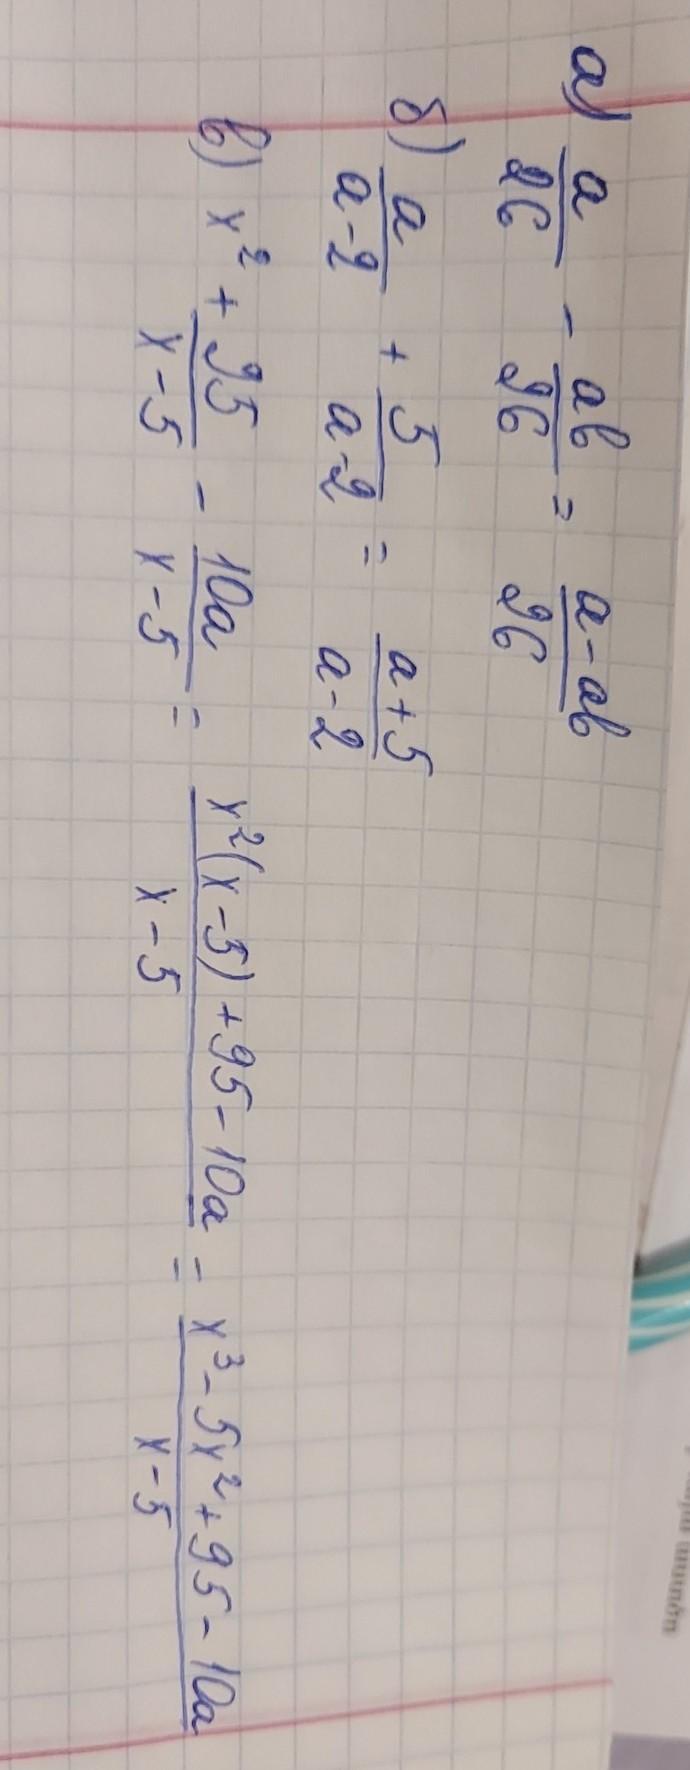 а) a/26 - ab/96 = a-ab/96
б) a/a-2 + 5/a-2 = a+5/a-2
в) x² + 95/x-5 - 10a/x-5 = x²(x-5)+95-10a/x-5 = x³-5x²+95-10a/x-5